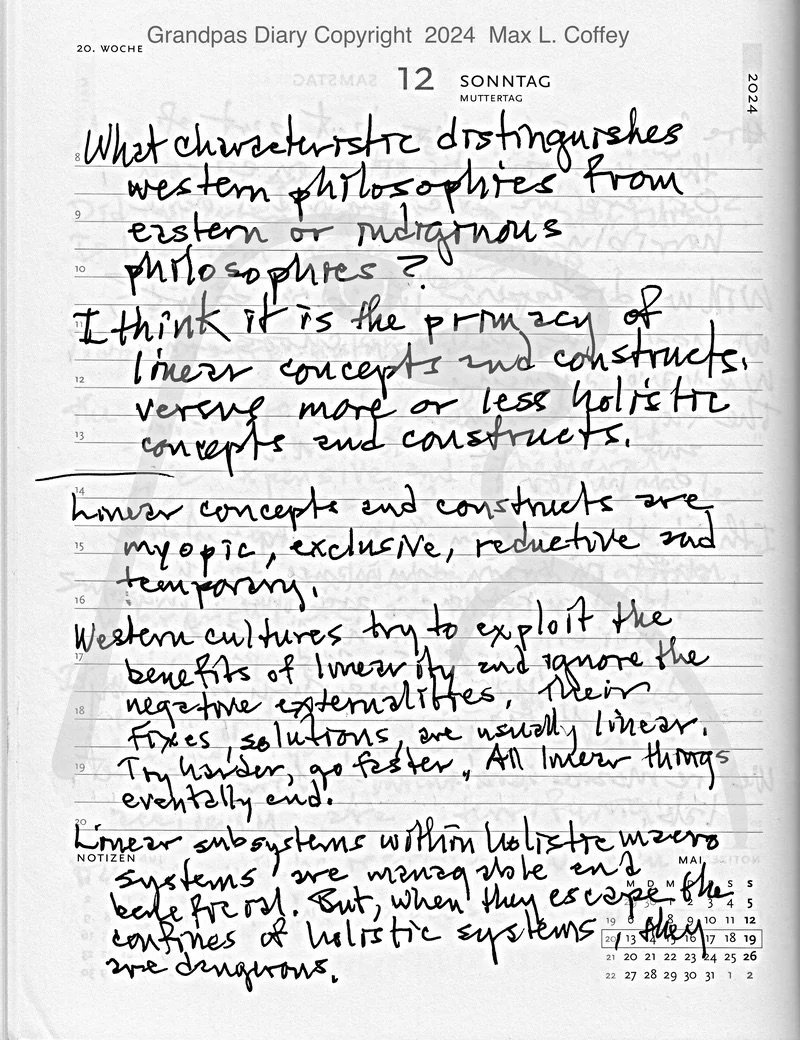 Grandpas Diary Copyright 2024 Max L. Coffey
20. WOCHE
12 SONNTAG
MUTTERTAG
2024
8 What characteristic distinguishes
western philosophies from
9 eastern or indiginous
10 philosophies?
11 I think it is the primacy of
linear concepts and constructs,
12 versus more or less holistic
13 concepts and constructs.
14 Linear concepts and constructs are
15 myopic, exclusive, reductive and
temporary.
16 Western cultures try to exploit the
17 benefits of linearity and ignore the
18 negative externalities. Their
fixes, solutions, are usually linear.
19 Try harder, go faster. All linear things
eventally end.
20 Linear subsystems within holistic macro
NOTIZEN
systems are managable and
beneficial. But, when they escape the
confines of holistic systems, they
are dangerous.
MAI
M D M D F S S
1 2 3 4 5
19 6 7 8 9 10 11 12
20 13 14 15 16 17 18 19
21 20 21 22 23 24 25 26
22 27 28 29 30 31 1 2